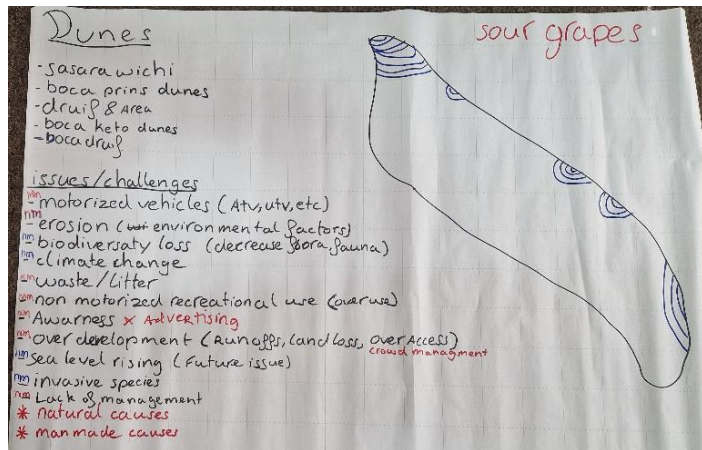 Dunes
sour grapes
- sasarawichi
- boca prins dunes
- druif & Area
- boca keto dunes
- boca druif
issues/challenges
- motorized vehicles (Atv, utv, etc)
nm - erosion (environmental factors)
nm - biodiversaty loss (decrease flora, fauna)
nm - climate change
- waste/litter
- non motorized recreational use (over use)
- Awarness x Advertising
- over development (Runoffs, land loss, over Access)
crowd managment
- sea level rising (Future issue)
nm - invasive species
- Lack of management
* natural causes
* man made causes